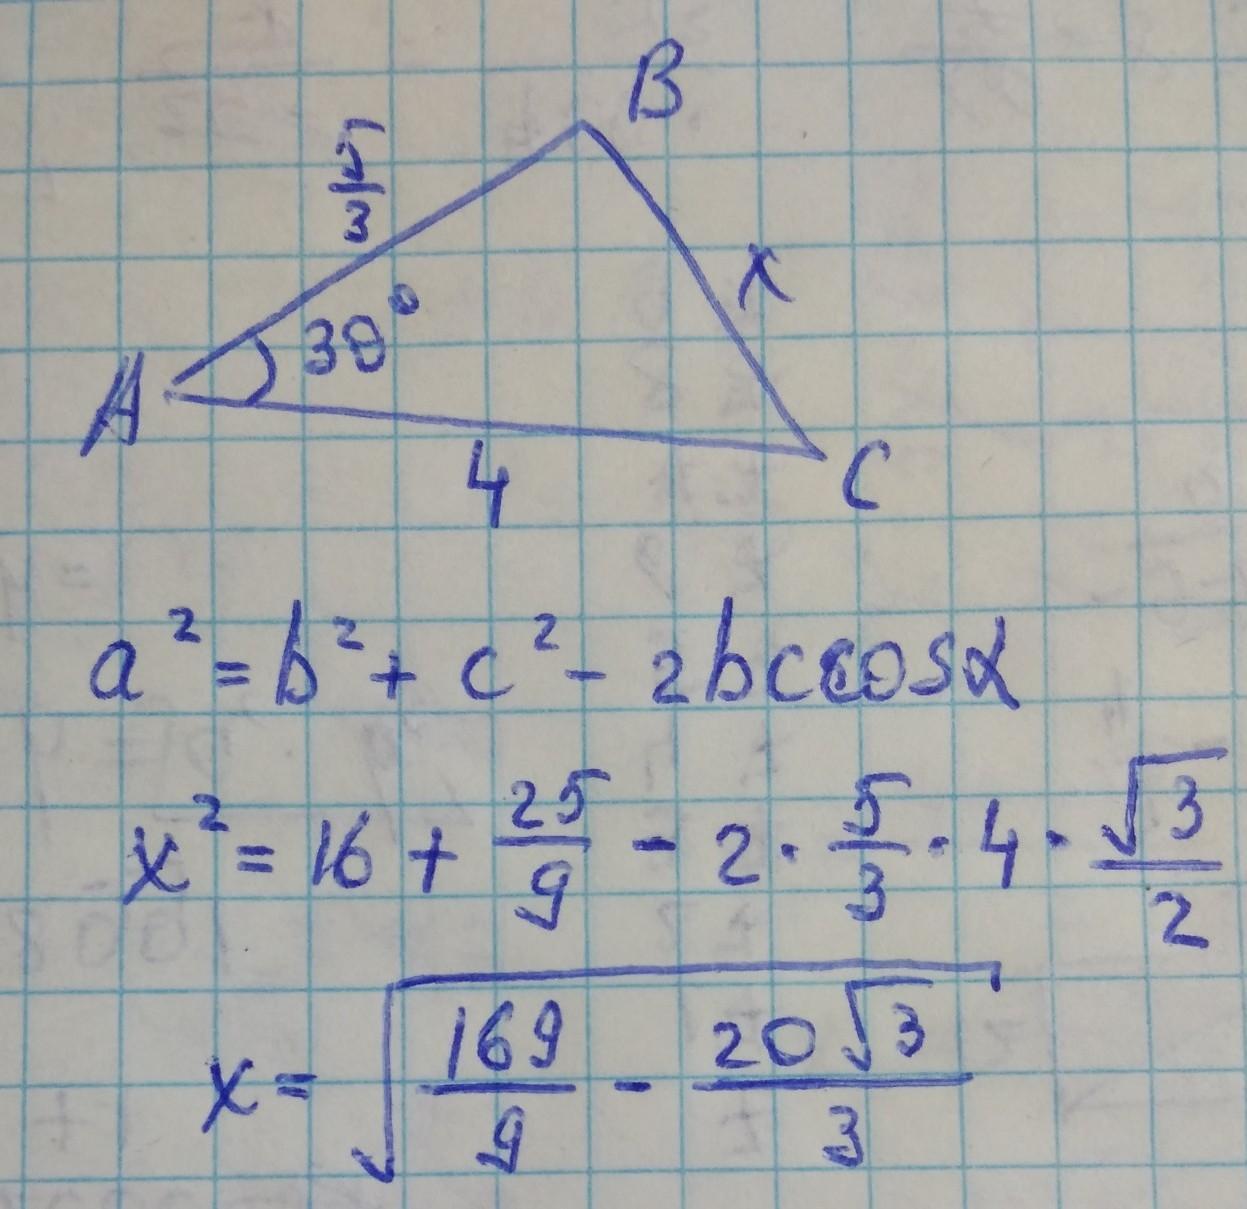 B
5/3
x
30°
A
4
C
a² = b² + c² - 2bccosα
x² = 16 + 25/9 - 2 · 5/3 · 4 · √3/2
x = √(169/9 - 20√3/3)